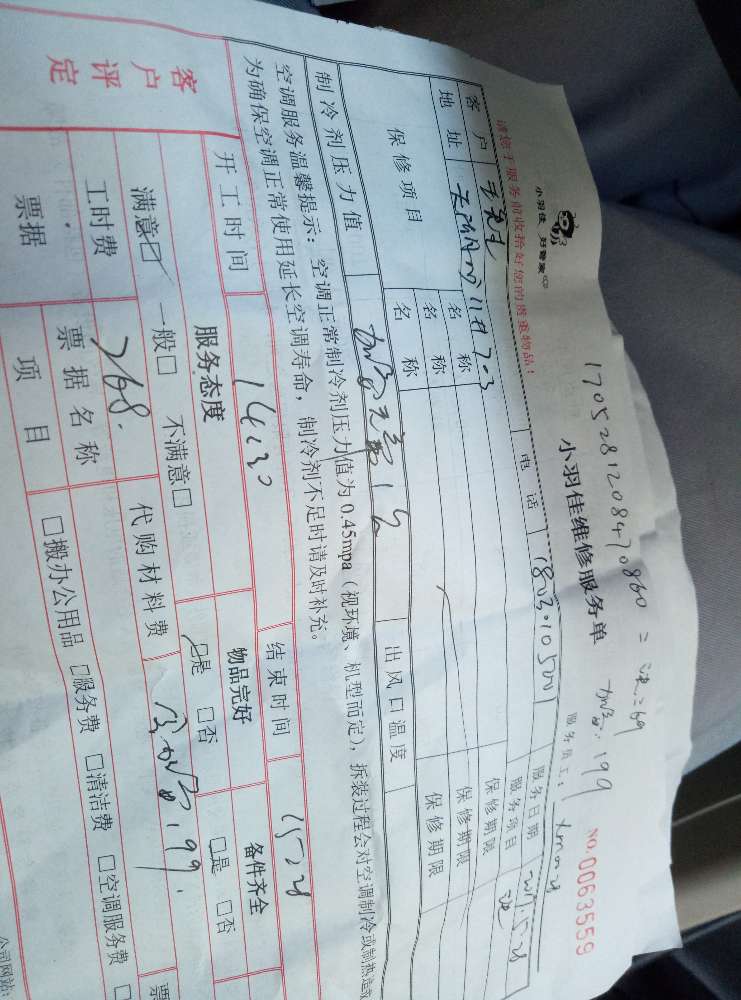 请您于服务前收拾好您的贵重物品!
小羽佳 好管家
1705281208470860 = 洗=69
加氟.199
小羽佳维修服务单
服务员工:
NO.0063559
客户
电话
服务日期
地址
服务项目 洗
保修项目
名称
保修期限
名称
保修期限
名称
保修期限
制冷剂压力值
出风口温度
空调服务温馨提示:空调正常制冷剂压力值为0.45mpa(视环境、机型而定),拆装过程会对空调制冷或制热造成
为确保空调正常使用延长空调寿命,制冷剂不足时请及时补充。
开工时间 14:30
结束时间
客户评定
服务态度
物品完好
备件齐全
满意☑ 一般□ 不满意□
☑是 □否
□是 □否
工时费 268.
代购材料费
199.
票据
票据名称
项目
□搬办公用品 □服务费 □清洁费 □空调服务费
票
公司网站: